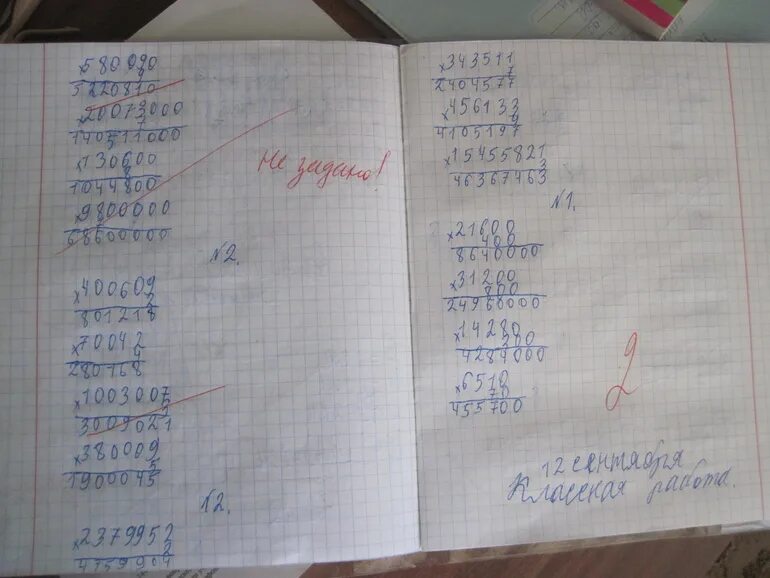 ×580090
9
5220810
×20073000
7
140511000
×130600
8
1044800
×9800000
7
68600000
Не задано!
№2.
×400609
2
801218
×70042
4
280168
×1003007
3009021
×380009
5
1900045
№2.
×2379952
2
4759904
×343511
7
2404577
×456133
9
4105197
×15455821
3
46367463
№1.
×21600
400
8640000
×31200
800
24960000
×14280
300
4284000
×6510
70
455700
2
12 сентября
Классная работа.